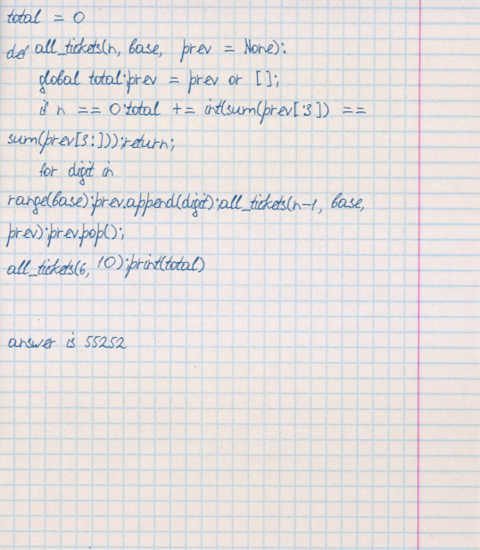 total = 0
def all_tickets(n, base, prev = None):
global total;prev = prev or [];
if n == 0:total += int(sum(prev[:3]) ==
sum(prev[3:]));return;
for digit in
range(base):prev.append(digit);all_tickets(n-1, base,
prev);prev.pop();
all_tickets(6, 10);print(total)
answer is 55252